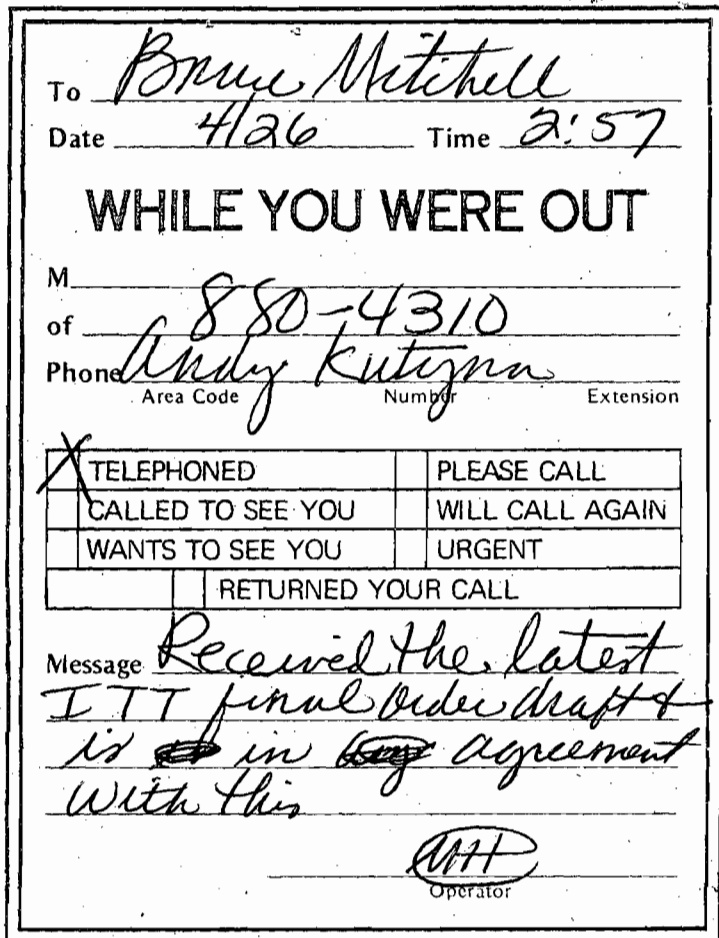 To Bruce Mitchell
Date 4/26 Time 2:57
WHILE YOU WERE OUT
M
of 880-4310
Phone Andy Kutyna
Area Code Number Extension
X TELEPHONED PLEASE CALL
CALLED TO SEE YOU WILL CALL AGAIN
WANTS TO SEE YOU URGENT
RETURNED YOUR CALL
Message Received the latest
ITT final order draft &
is in agreement
with this
Operator